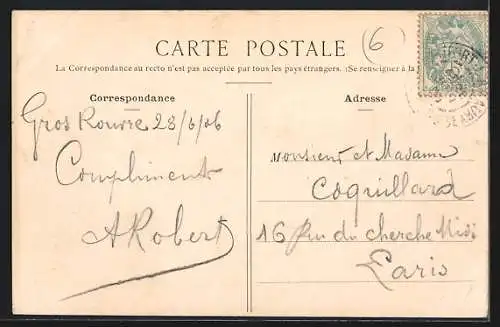 CARTE POSTALE
(6
La Correspondance au recto n'est pas acceptée par tous les pays étrangers. (Se renseigner à la
Correspondance
Adresse
Gros Rouvre 28/6/06
Compliments
ARobert
Monsieur et Madame
Coquillard
16 Rue du cherche Midi
Paris